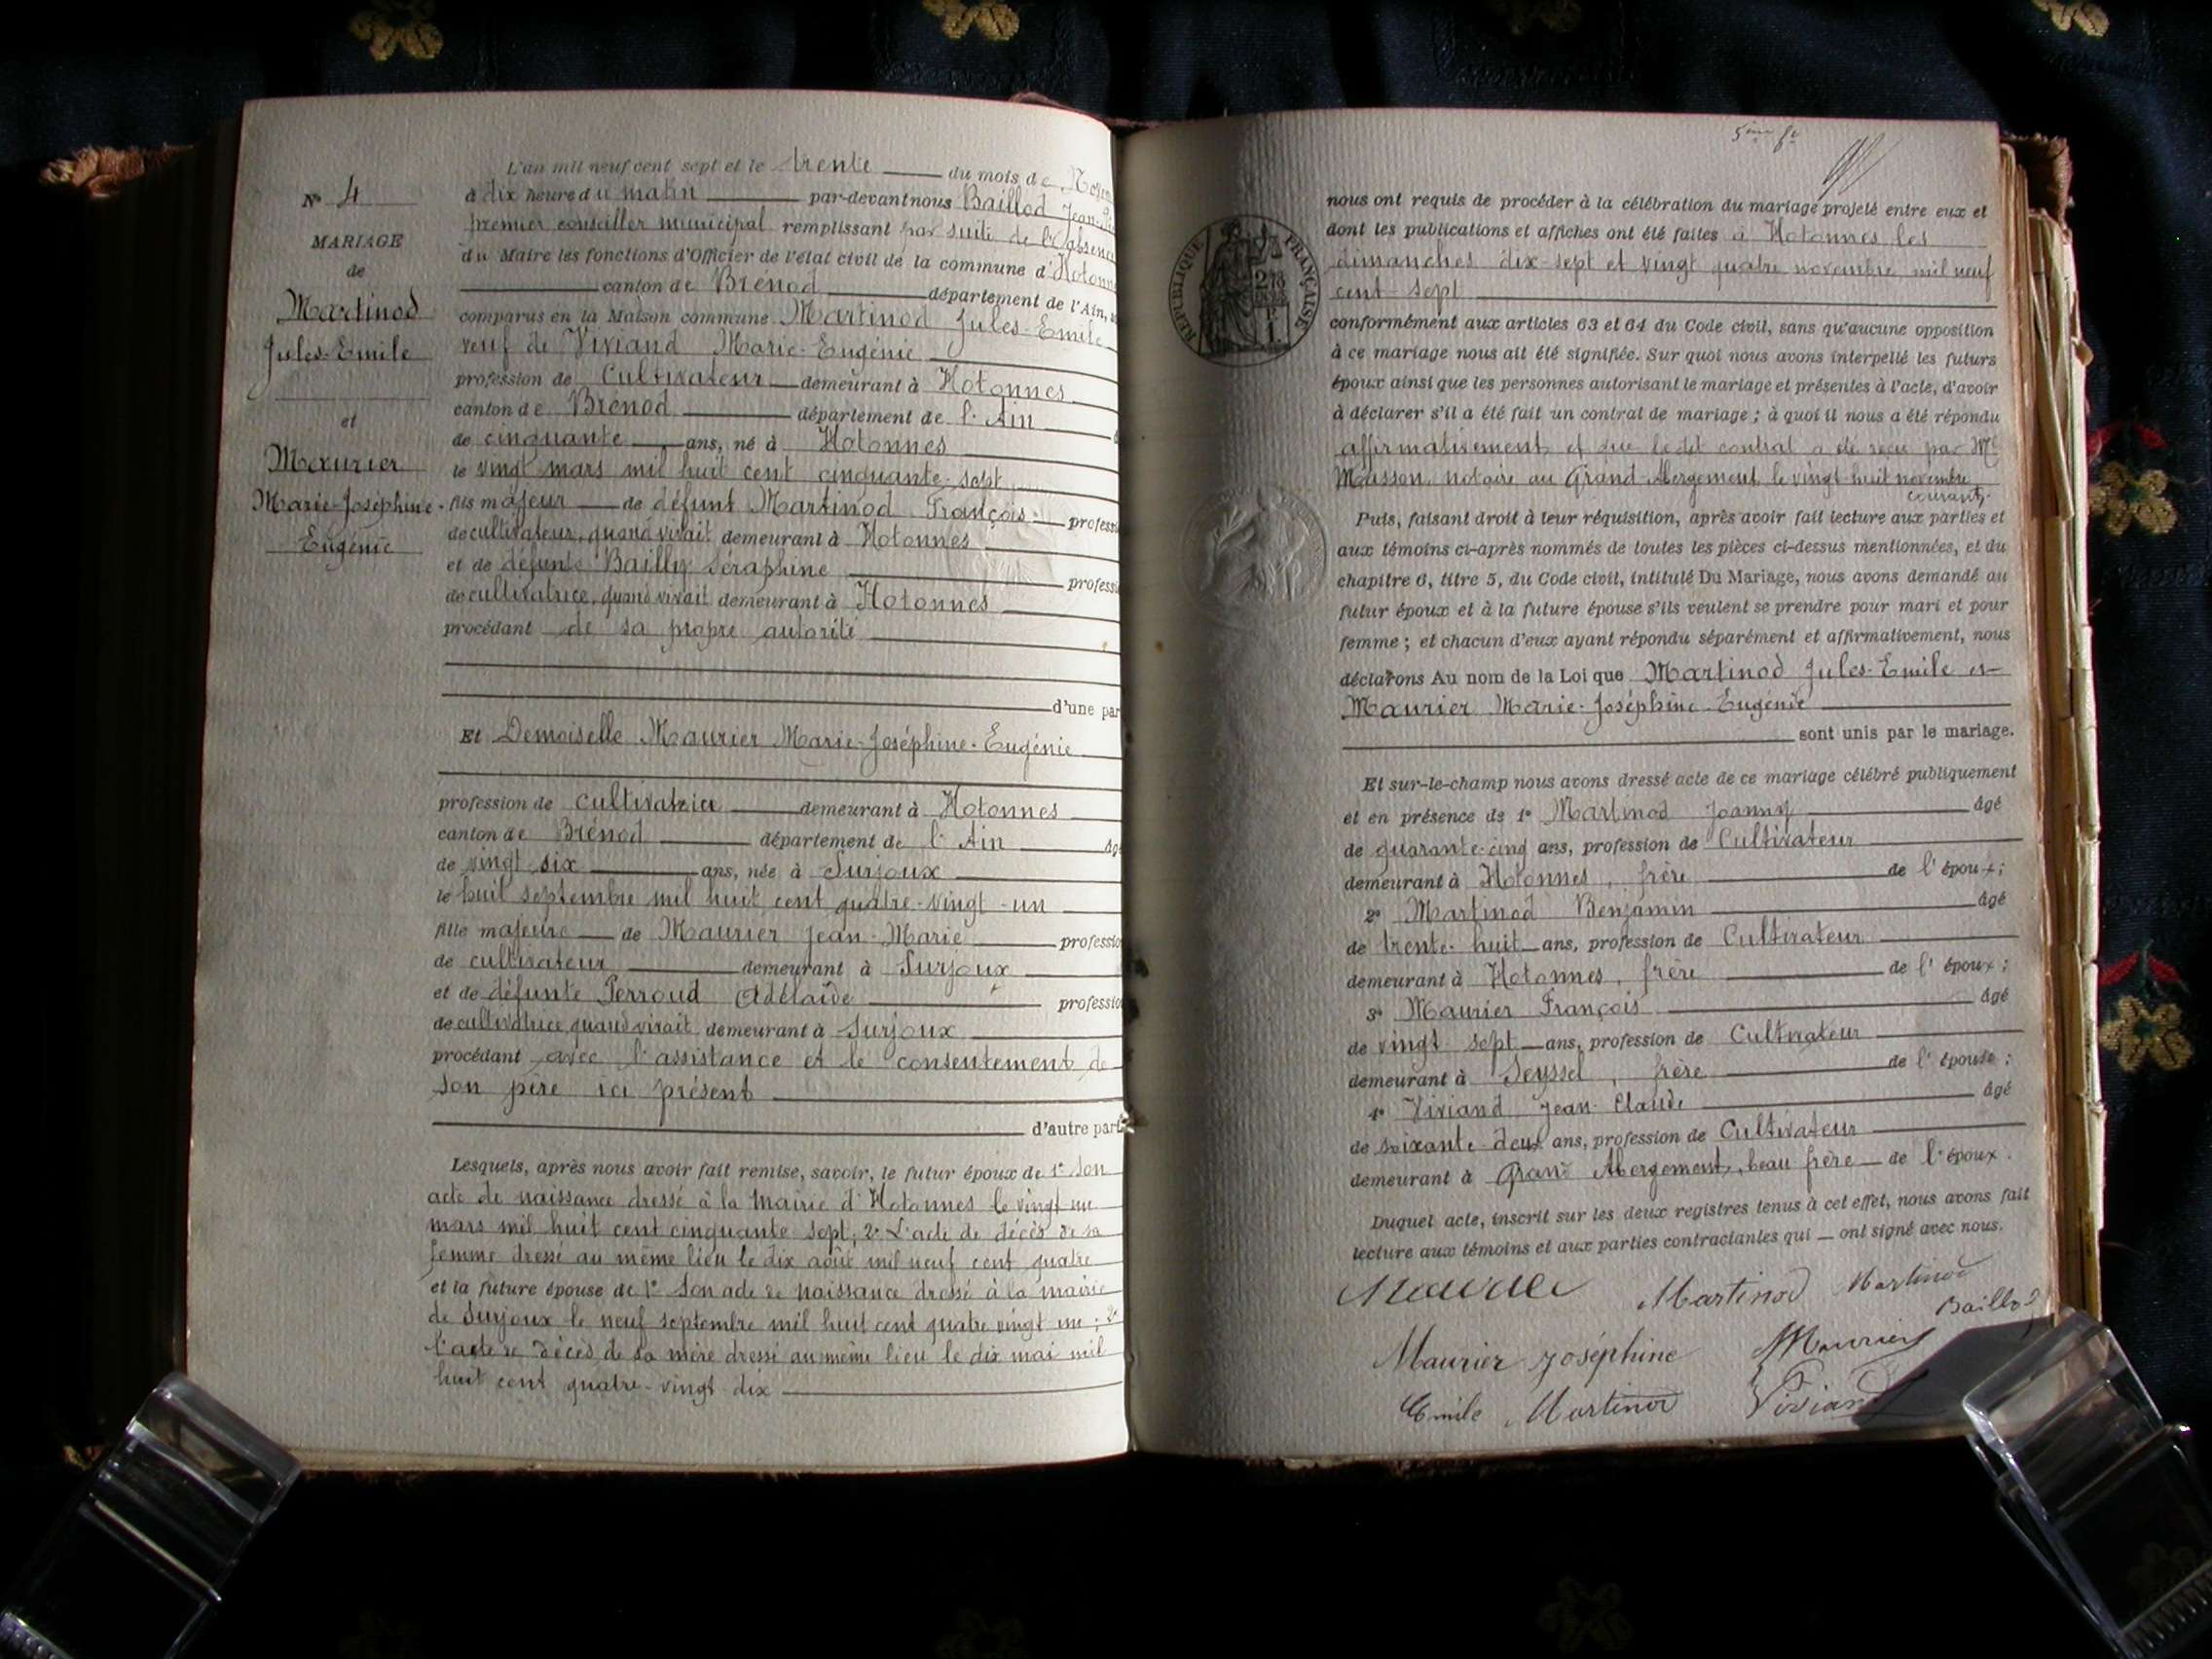 N° 4
MARIAGE
de
Martinod
Jules-Emile
et
Maurier
Marie-Joséphine-
Eugénie
L'an mil neuf cent sept et le trente du mois de
à dix heure du matin par-devant nous Baillod Jean
premier conseiller municipal remplissant par suite de l'absence
du Maire les fonctions d'Officier de l'état civil de la commune d'Hotonnes
canton de Brénod département de l'Ain,
comparus en la Maison commune Martinod Jules-Emile
veuf de Viviand Marie-Eugénie
profession de Cultivateur demeurant à Hotonnes
canton de Brénod département de l'Ain
de cinquante ans, né à Hotonnes
le vingt mars mil huit cent cinquante-sept
fils majeur de défunt Martinod François professi
de cultivateur, quand vivait demeurant à Hotonnes
et de défunte Bailly Séraphine professi
de cultivatrice, quand vivait demeurant à Hotonnes
procédant de sa propre autorité
d'une par
Et Demoiselle Maurier Marie-Joséphine-Eugénie
profession de cultivatrice demeurant à Hotonnes
canton de Brénod département de l'Ain âgé
de vingt six ans, née à Surjoux
le huit septembre mil huit cent quatre-vingt-un
fille majeure de Maurier Jean-Marie professio
de cultivateur demeurant à Surjoux
et de défunte Perroud Adélaïde professio
de cultivatrice, quand vivait demeurant à Surjoux
procédant avec l'assistance et le consentement de
son père ici présent
d'autre part
Lesquels, après nous avoir fait remise, savoir, le futur époux de 1° Son
acte de naissance dressé à la Mairie d'Hotonnes le vingt un
mars mil huit cent cinquante sept; 2° L'acte de décès de sa
femme dressé au même lieu le dix août mil neuf cent quatre
et la future épouse de 1° Son acte de naissance dressé à la mairie
de Surjoux le neuf septembre mil huit cent quatre vingt un; 2°
l'acte de décès de sa mère dressé au même lieu le dix mai mil
huit cent quatre-vingt dix
RÉPUBLIQUE FRANÇAISE
nous ont requis de procéder à la célébration du mariage projeté entre eux et
dont les publications et affiches ont été faites à Hotonnes les
dimanches dix-sept et vingt quatre novembre mil neuf
cent sept
conformément aux articles 63 et 64 du Code civil, sans qu'aucune opposition
à ce mariage nous ait été signifiée. Sur quoi nous avons interpellé les futurs
époux ainsi que les personnes autorisant le mariage et présentes à l'acte, d'avoir
à déclarer s'il a été fait un contrat de mariage; à quoi il nous a été répondu
affirmativement et que ledit contrat a été reçu par Me
Masson, notaire au Grand-Abergement, le vingt-huit novembre
courant.
Puis, faisant droit à leur réquisition, après avoir fait lecture aux parties et
aux témoins ci-après nommés de toutes les pièces ci-dessus mentionnées, et du
chapitre 6, titre 5, du Code civil, intitulé Du Mariage, nous avons demandé au
futur époux et à la future épouse s'ils veulent se prendre pour mari et pour
femme; et chacun d'eux ayant répondu séparément et affirmativement, nous
déclarons Au nom de la Loi que Martinod Jules-Emile et
Maurier Marie-Joséphine-Eugénie
sont unis par le mariage.
Et sur-le-champ nous avons dressé acte de ce mariage célébré publiquement
et en présence de 1° Martinod Joanny âgé
de quarante-cinq ans, profession de Cultivateur
demeurant à Hotonnes, frère de l'époux;
2° Martinod Benjamin âgé
de trente-huit ans, profession de Cultivateur
demeurant à Hotonnes, frère de l'époux;
3° Maurier François âgé
de vingt-sept ans, profession de Cultivateur
demeurant à Seyssel, frère de l'épouse;
4° Viviand Jean-Claude âgé
de soixante-deux ans, profession de Cultivateur
demeurant à Grand Abergement, beau frère de l'époux.
Duquel acte, inscrit sur les deux registres tenus à cet effet, nous avons fait
lecture aux témoins et aux parties contractantes qui ont signé avec nous.
Martinod Martinod
Baillod
Maurier Joséphine Maurier
Emile Martinod Viviand